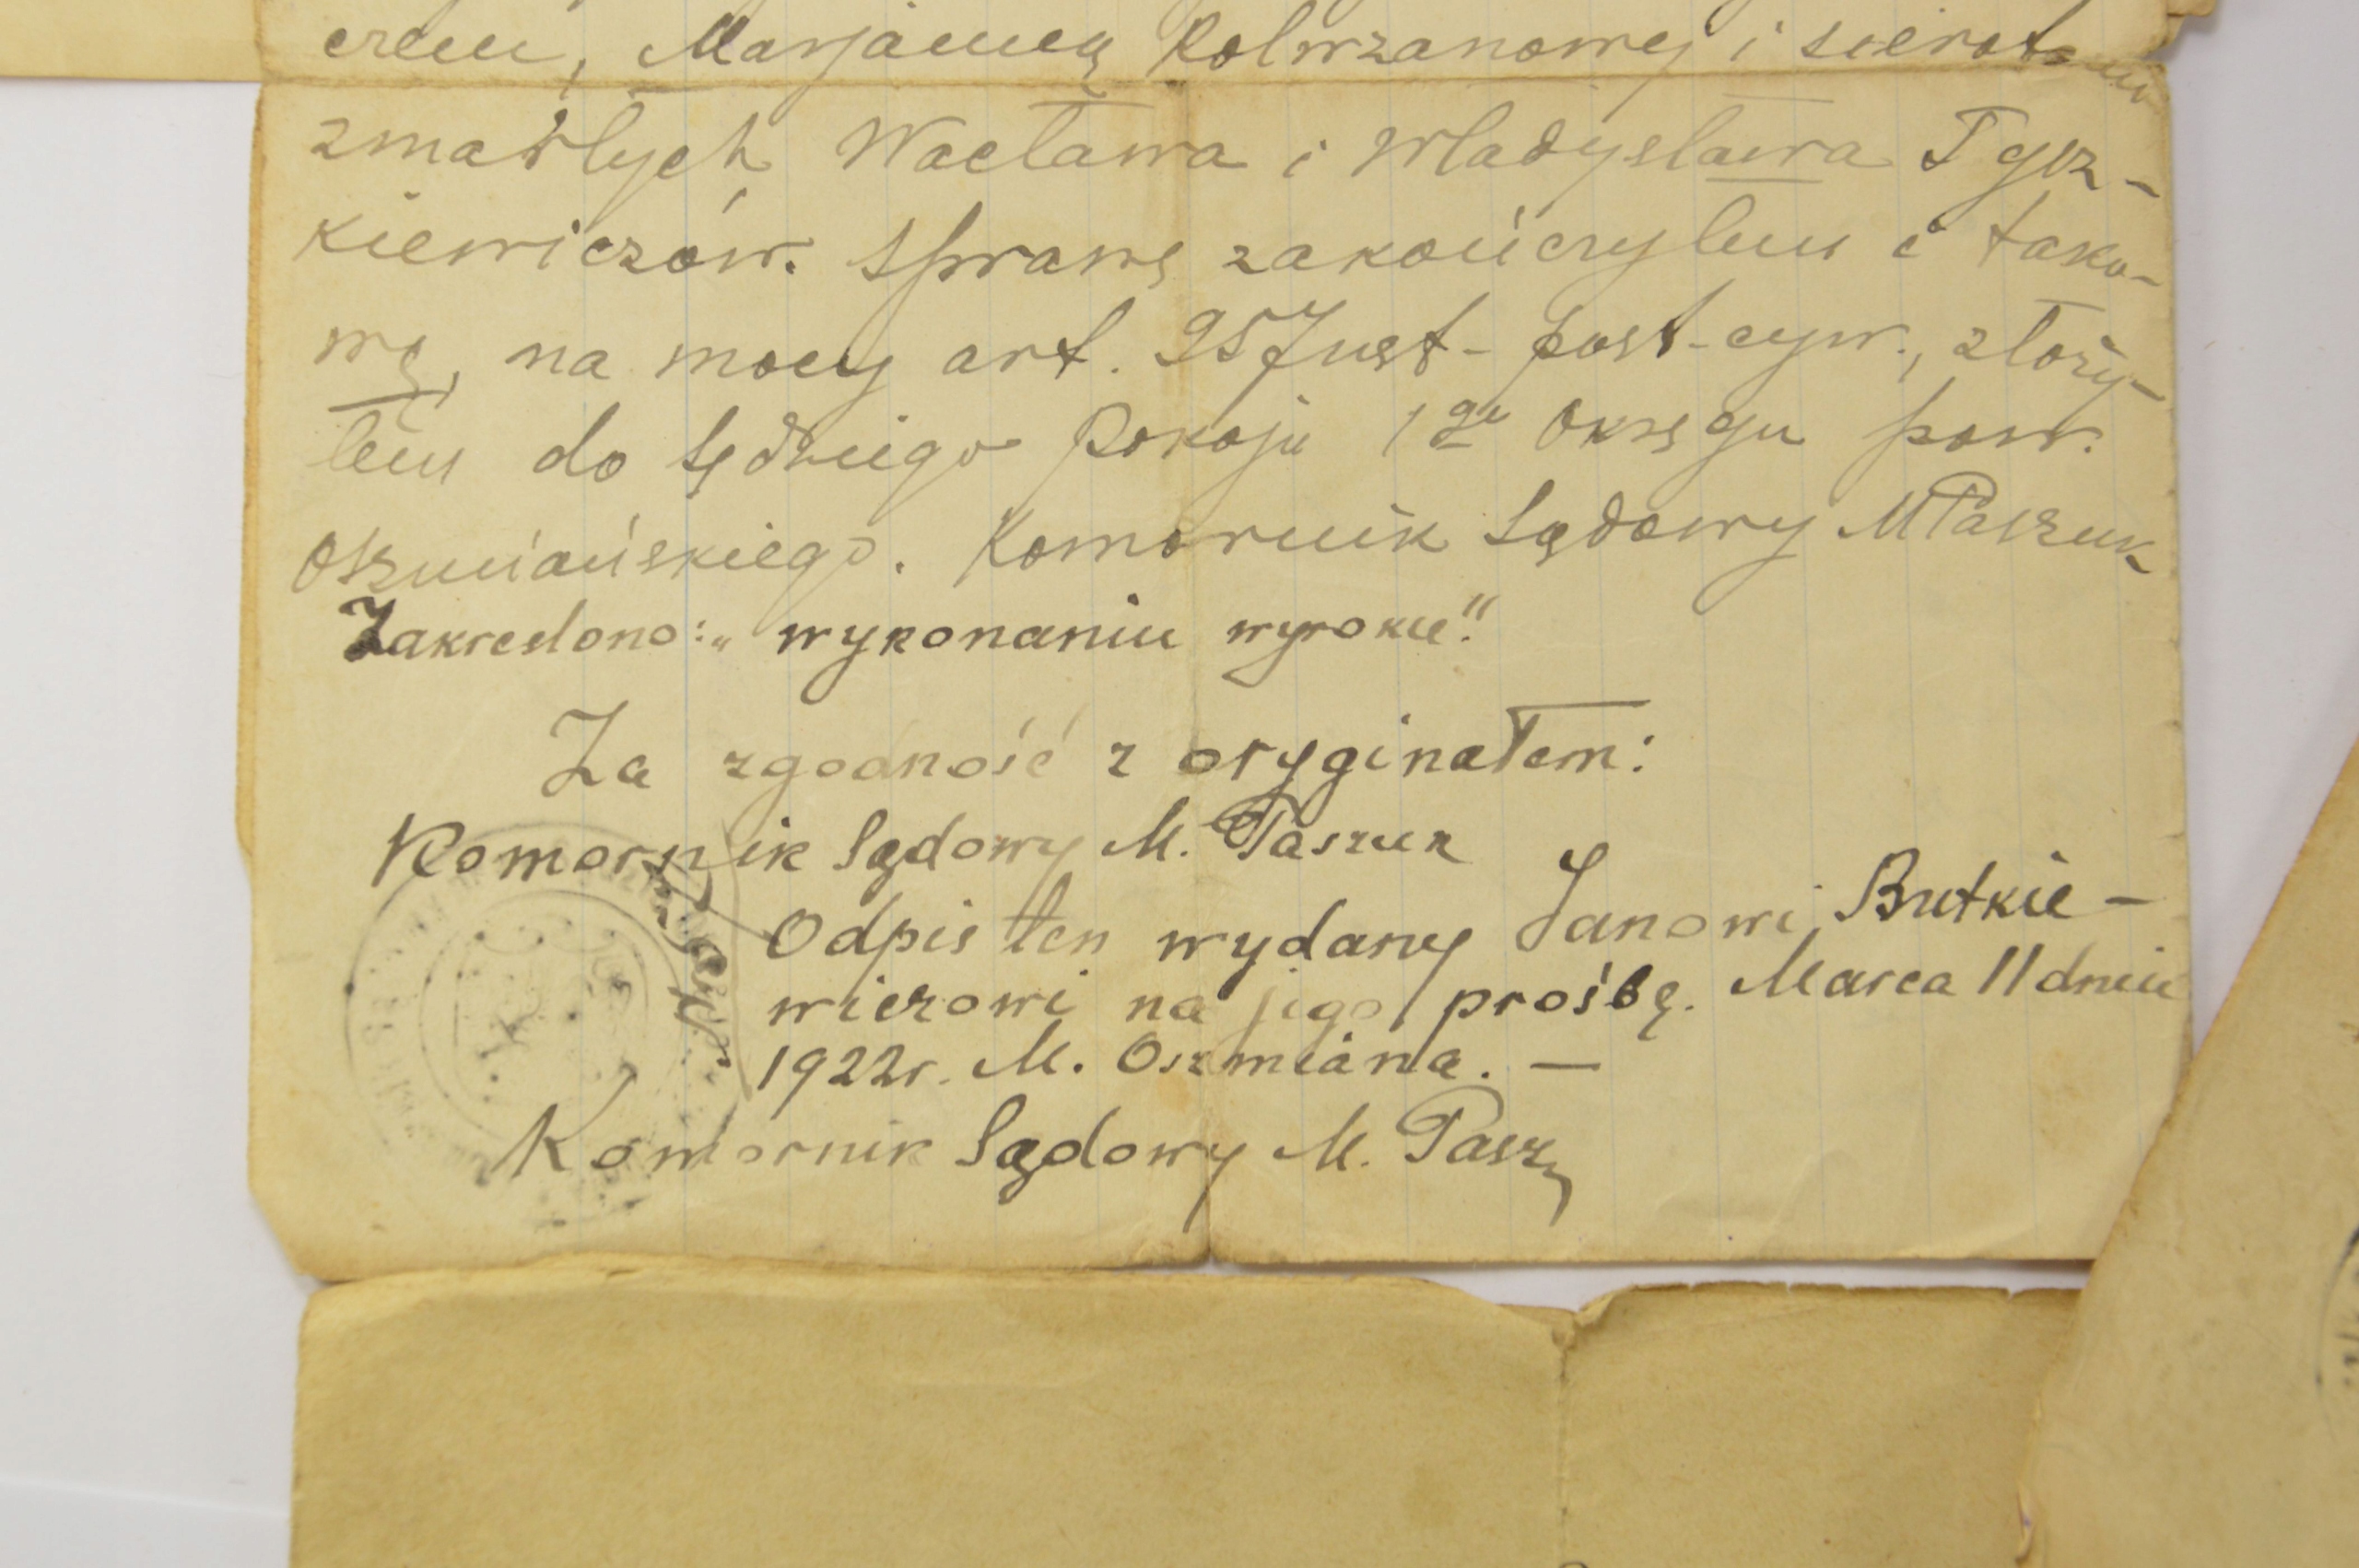 czem, Marjanną Kolwzanowej i sierotami
zmarłych Wacława i Władysława Tysz-
kiewiczów. Sprawę zakończyłem i tako-
wą, na mocy art. 957 ust. post. cyw., złoży-
łem do Sędziego Pokoju 1go Okręgu pow.
Oszmiańskiego. Komornik Sądowy M Paszuk
Zakreslono: „wykonaniu wyroku".
Za zgodność z oryginałem:
Komornik Sądowy M. Paszuk
Odpis ten wydany Janowi Butkie-
wiczowi na jego prośbę. Marca 11 dnia
1922r. M. Oszmiana. —
Komornik Sądowy M. Pasz